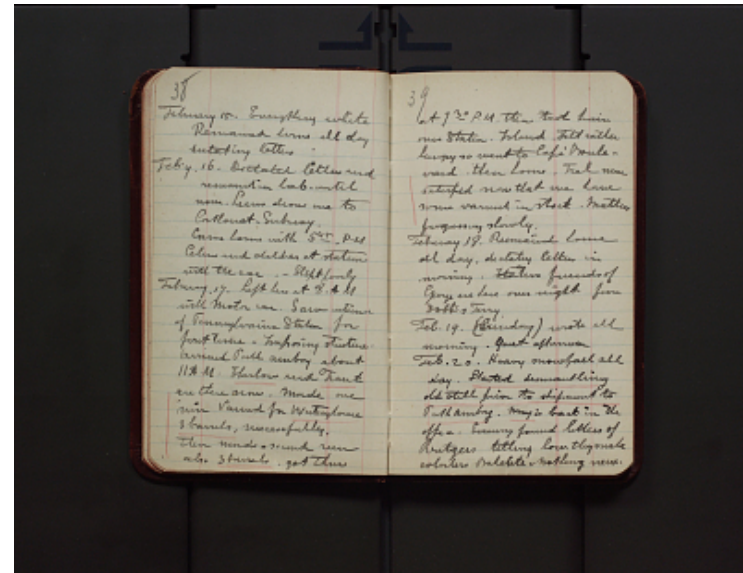 38
February 15. Everything white
Remained home all day
dictating letters.
Feb'y. 16. Dictated letters and
remained in lab. until
noon. Leems drove me to
Subway.
Came home with 5 P.M.
Celine and children at station
with the car. - Slept poorly
February. 17. Left here at 8 A M
with Motor car. Saw interior
of Pennsylvania Station for
first time. Imposing structure
arrived Perth amboy about
11 A M. and
are there now. Made one
run Varnish for Westinghouse
3 barrels, successfully.
Then made second run
also 3 barrels. got thru
39
at 7 P.M. then took train
over Staten Island. Felt rather
hungry so went to Café Boule-
vard. then home. Feel more
satisfied now that we have
some varnish in stock. Matters
progressing slowly.
February 18. Remained home
all day. dictating letters in
morning. friends of
George are here over night from
Dobbs Ferry.
Feb. 19. (Sunday) wrote all
morning. Quiet afternoon
Feb. 20. Heavy snowfall all
day. Started dismantling
old still prior to shipment to
Perth amboy. is back in the
office. Evening found letters of
Rutgers telling how
Bakelite. nothing new.